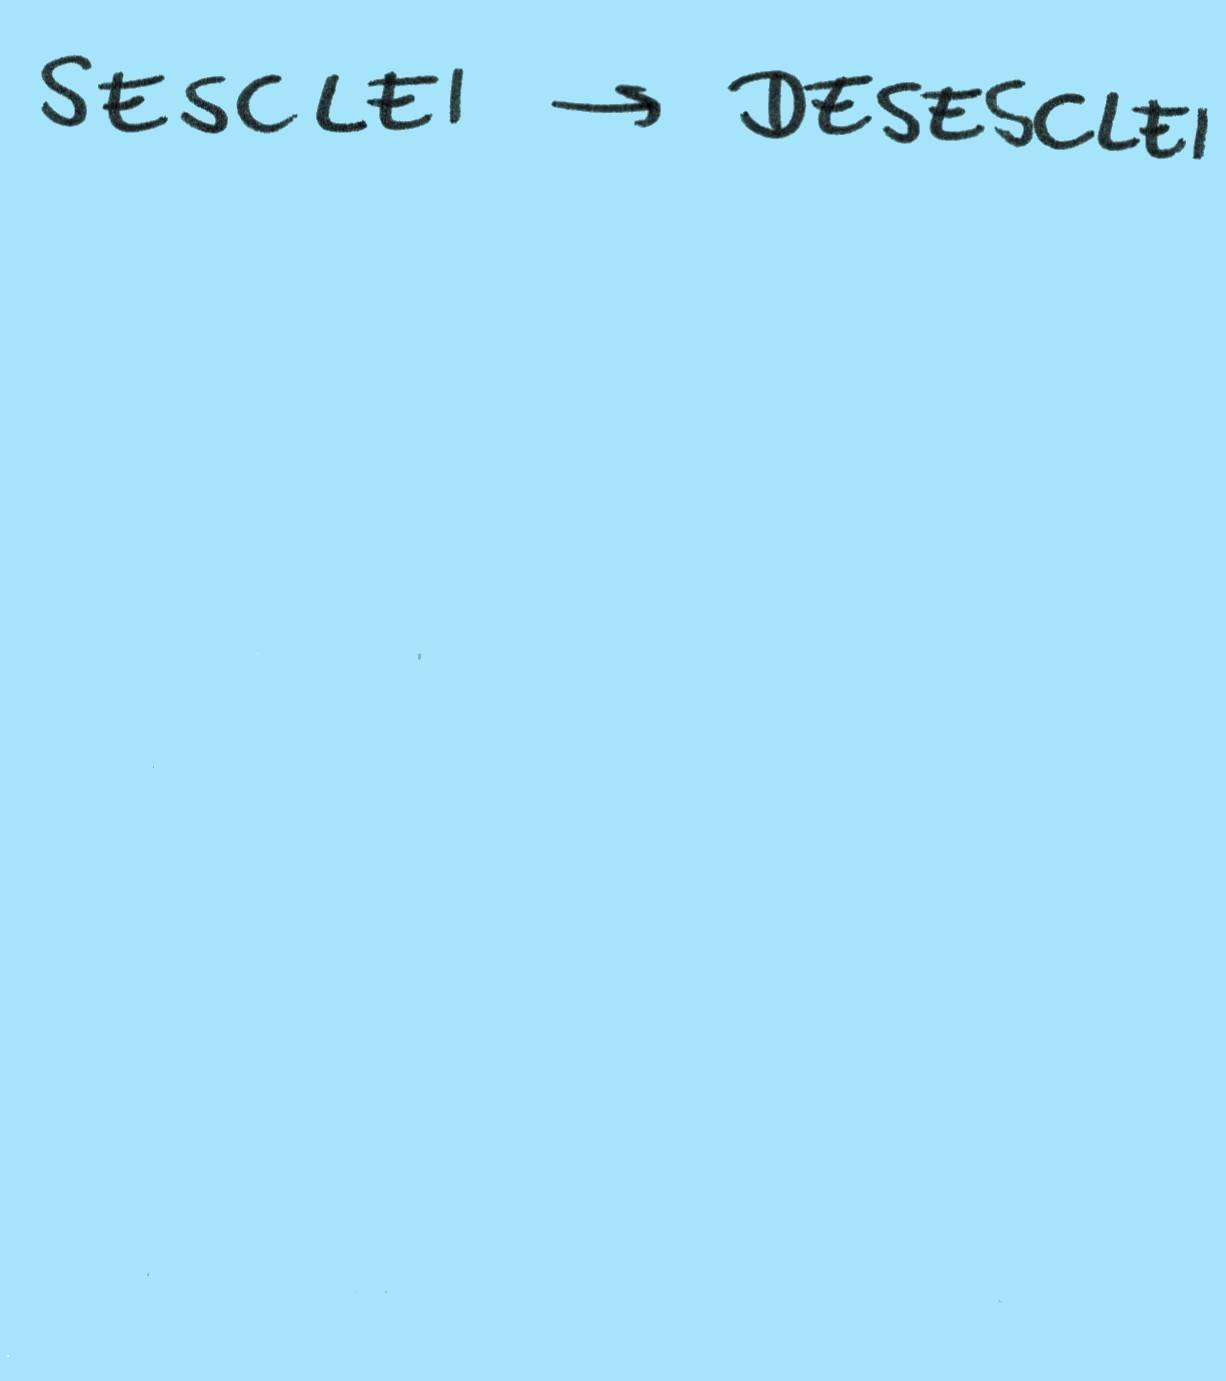 SESCLEI → DESESCLEI